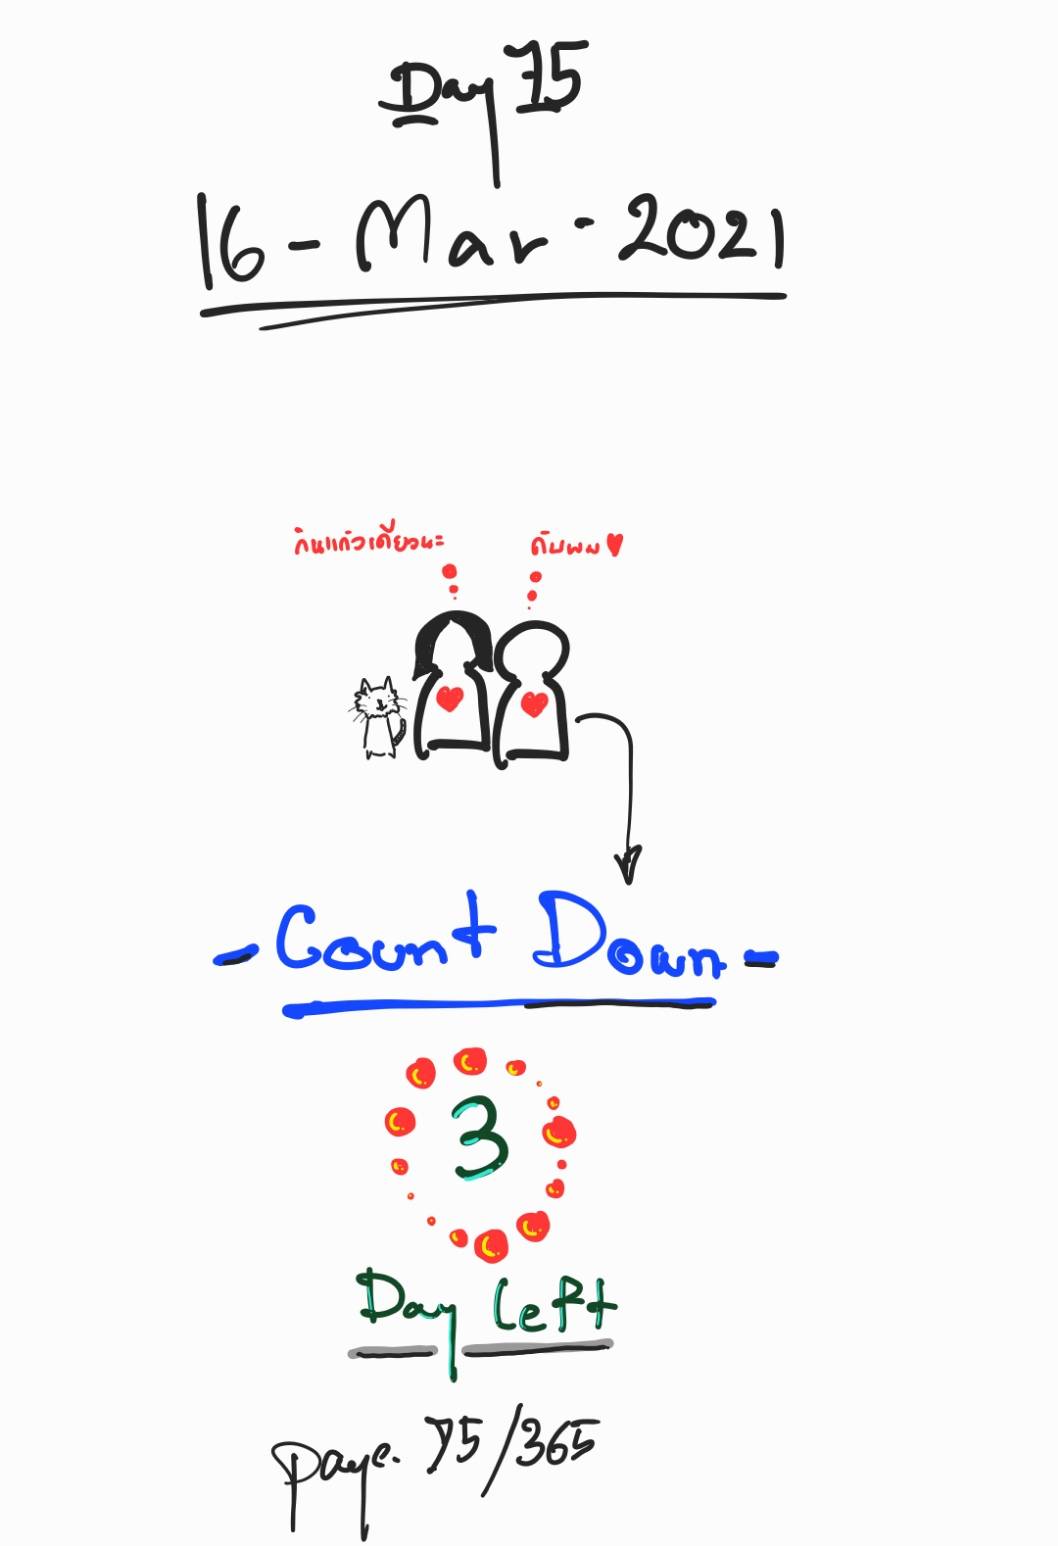 Day 75
16 - Mar - 2021
กินแก้วเดียวนะ
ดับพผ
- Count Down -
3
Day Left
page. 75/365